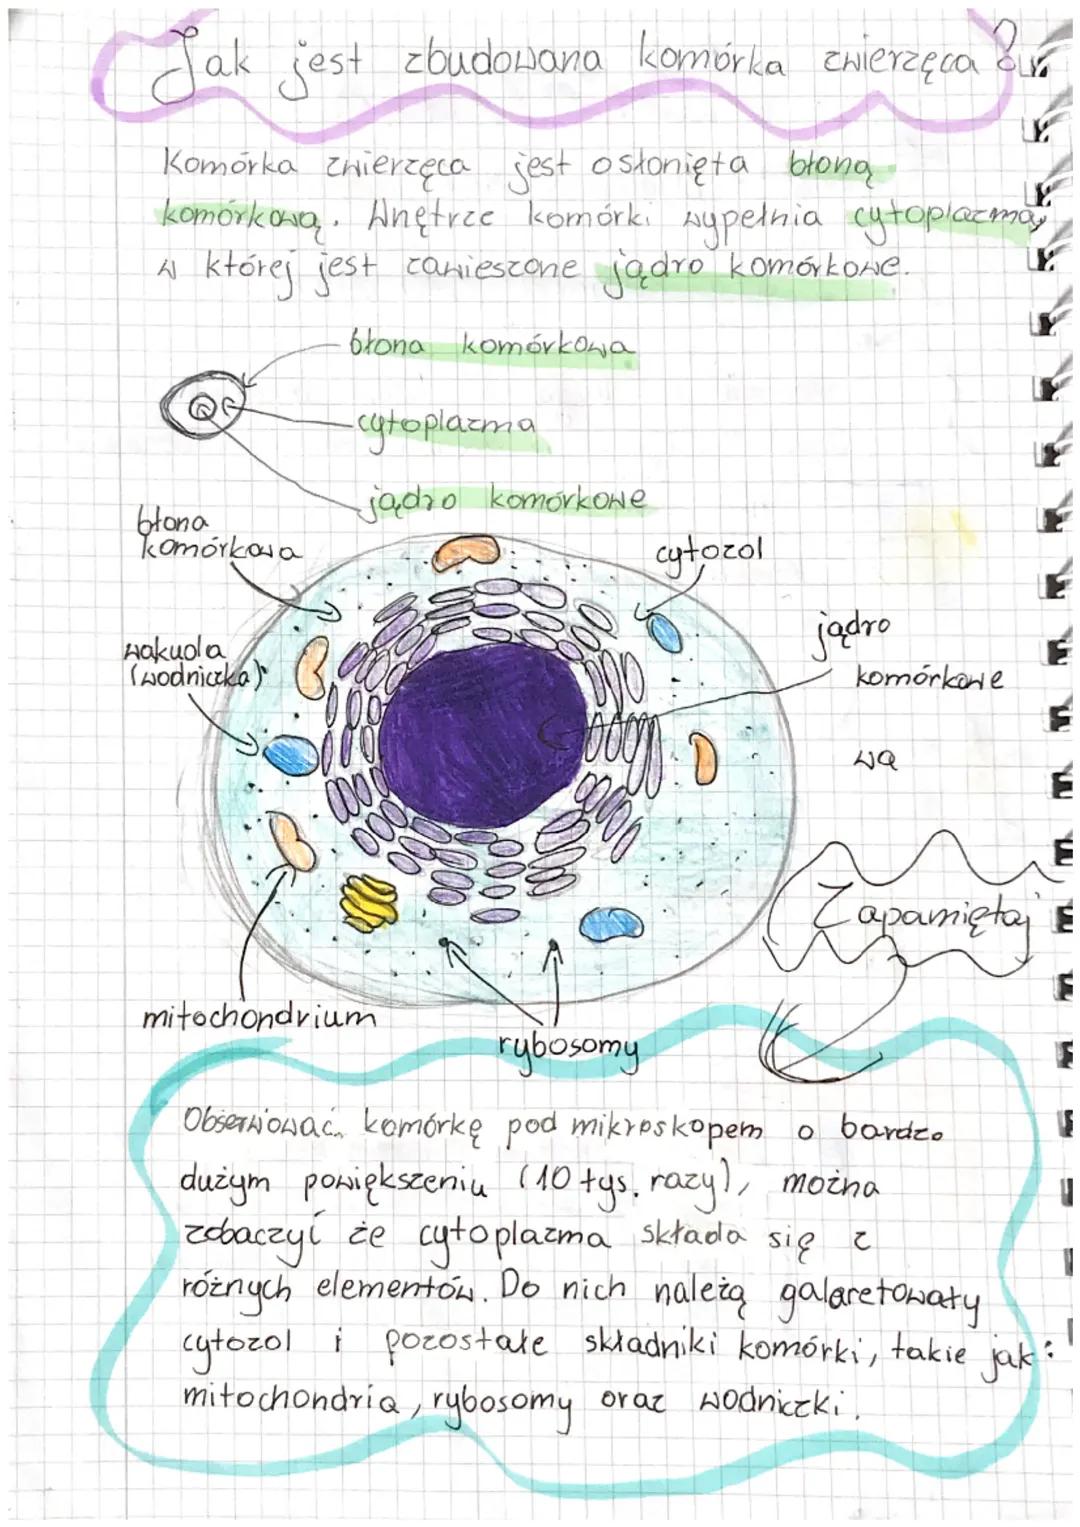 Jak jest zbudowana komórka zwierzęca?
Komórka zwierzęca jest osłonięta błoną
komórkową. Wnętrze komórki wypełnia cytoplazma,
w której jest zawieszone jądro komórkowe.
błona komórkowa
cytoplazma
jądro komórkowe
błona
komórkowa
cytozol
jądro
komórkowe
wakuola
(wodniczka)
wa
Zapamiętaj
mitochondrium
rybosomy
Obserwować komórkę pod mikroskopem o bardzo
dużym powiększeniu (10 tys. razy), można
zobaczyć że cytoplazma składa się z
różnych elementów. Do nich należą galaretowaty
cytozol i pozostałe składniki komórki, takie jak:
mitochondria, rybosomy oraz wodniczki.